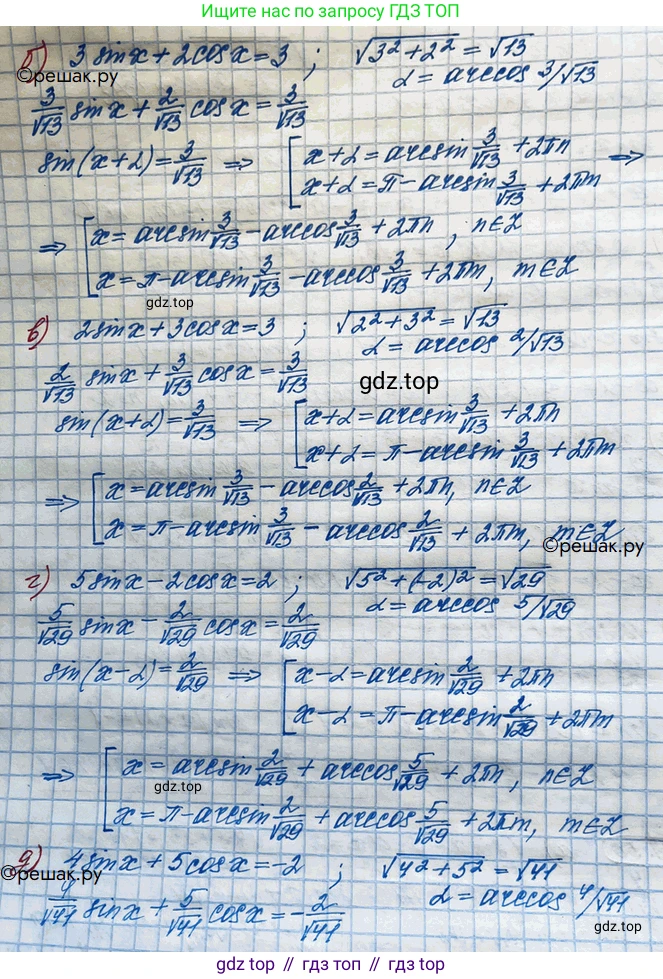 Ищите нас по запросу ГДЗ ТОП
б) 3 sin x + 2 cos x = 3 ; √(3² + 2²) = √13
©reшак.ру α = arccos 3/√13
3/√13 sin x + 2/√13 cos x = 3/√13
sin(x + α) = 3/√13 ⇒ [ x + α = arcsin 3/√13 + 2πn
x + α = π - arcsin 3/√13 + 2πm ⇒
⇒ [ x = arcsin 3/√13 - arccos 3/√13 + 2πn, n ∈ Z
x = π - arcsin 3/√13 - arccos 3/√13 + 2πm, m ∈ Z
gdz.top
в) 2 sin x + 3 cos x = 3 ; √(2² + 3²) = √13
α = arccos 2/√13
2/√13 sin x + 3/√13 cos x = 3/√13
gdz.top
sin(x + α) = 3/√13 ⇒ [ x + α = arcsin 3/√13 + 2πn
x + α = π - arcsin 3/√13 + 2πm
⇒ [ x = arcsin 3/√13 - arccos 2/√13 + 2πn, n ∈ Z
x = π - arcsin 3/√13 - arccos 2/√13 + 2πm, m ∈ Z
©reшак.ру
г) 5 sin x - 2 cos x = 2 ; √(5² + (-2)²) = √29
α = arccos 5/√29
5/√29 sin x - 2/√29 cos x = 2/√29
sin(x - α) = 2/√29 ⇒ [ x - α = arcsin 2/√29 + 2πn
x - α = π - arcsin 2/√29 + 2πm
⇒ [ x = arcsin 2/√29 + arccos 5/√29 + 2πn, n ∈ Z
gdz.top
x = π - arcsin 2/√29 + arccos 5/√29 + 2πm, m ∈ Z
д) 4 sin x + 5 cos x = -2 ; √(4² + 5²) = √41
©reшак.ру α = arccos 4/√41
4/√41 sin x + 5/√41 cos x = - 2/√41
gdz.top // гдз.топ // gdz.top